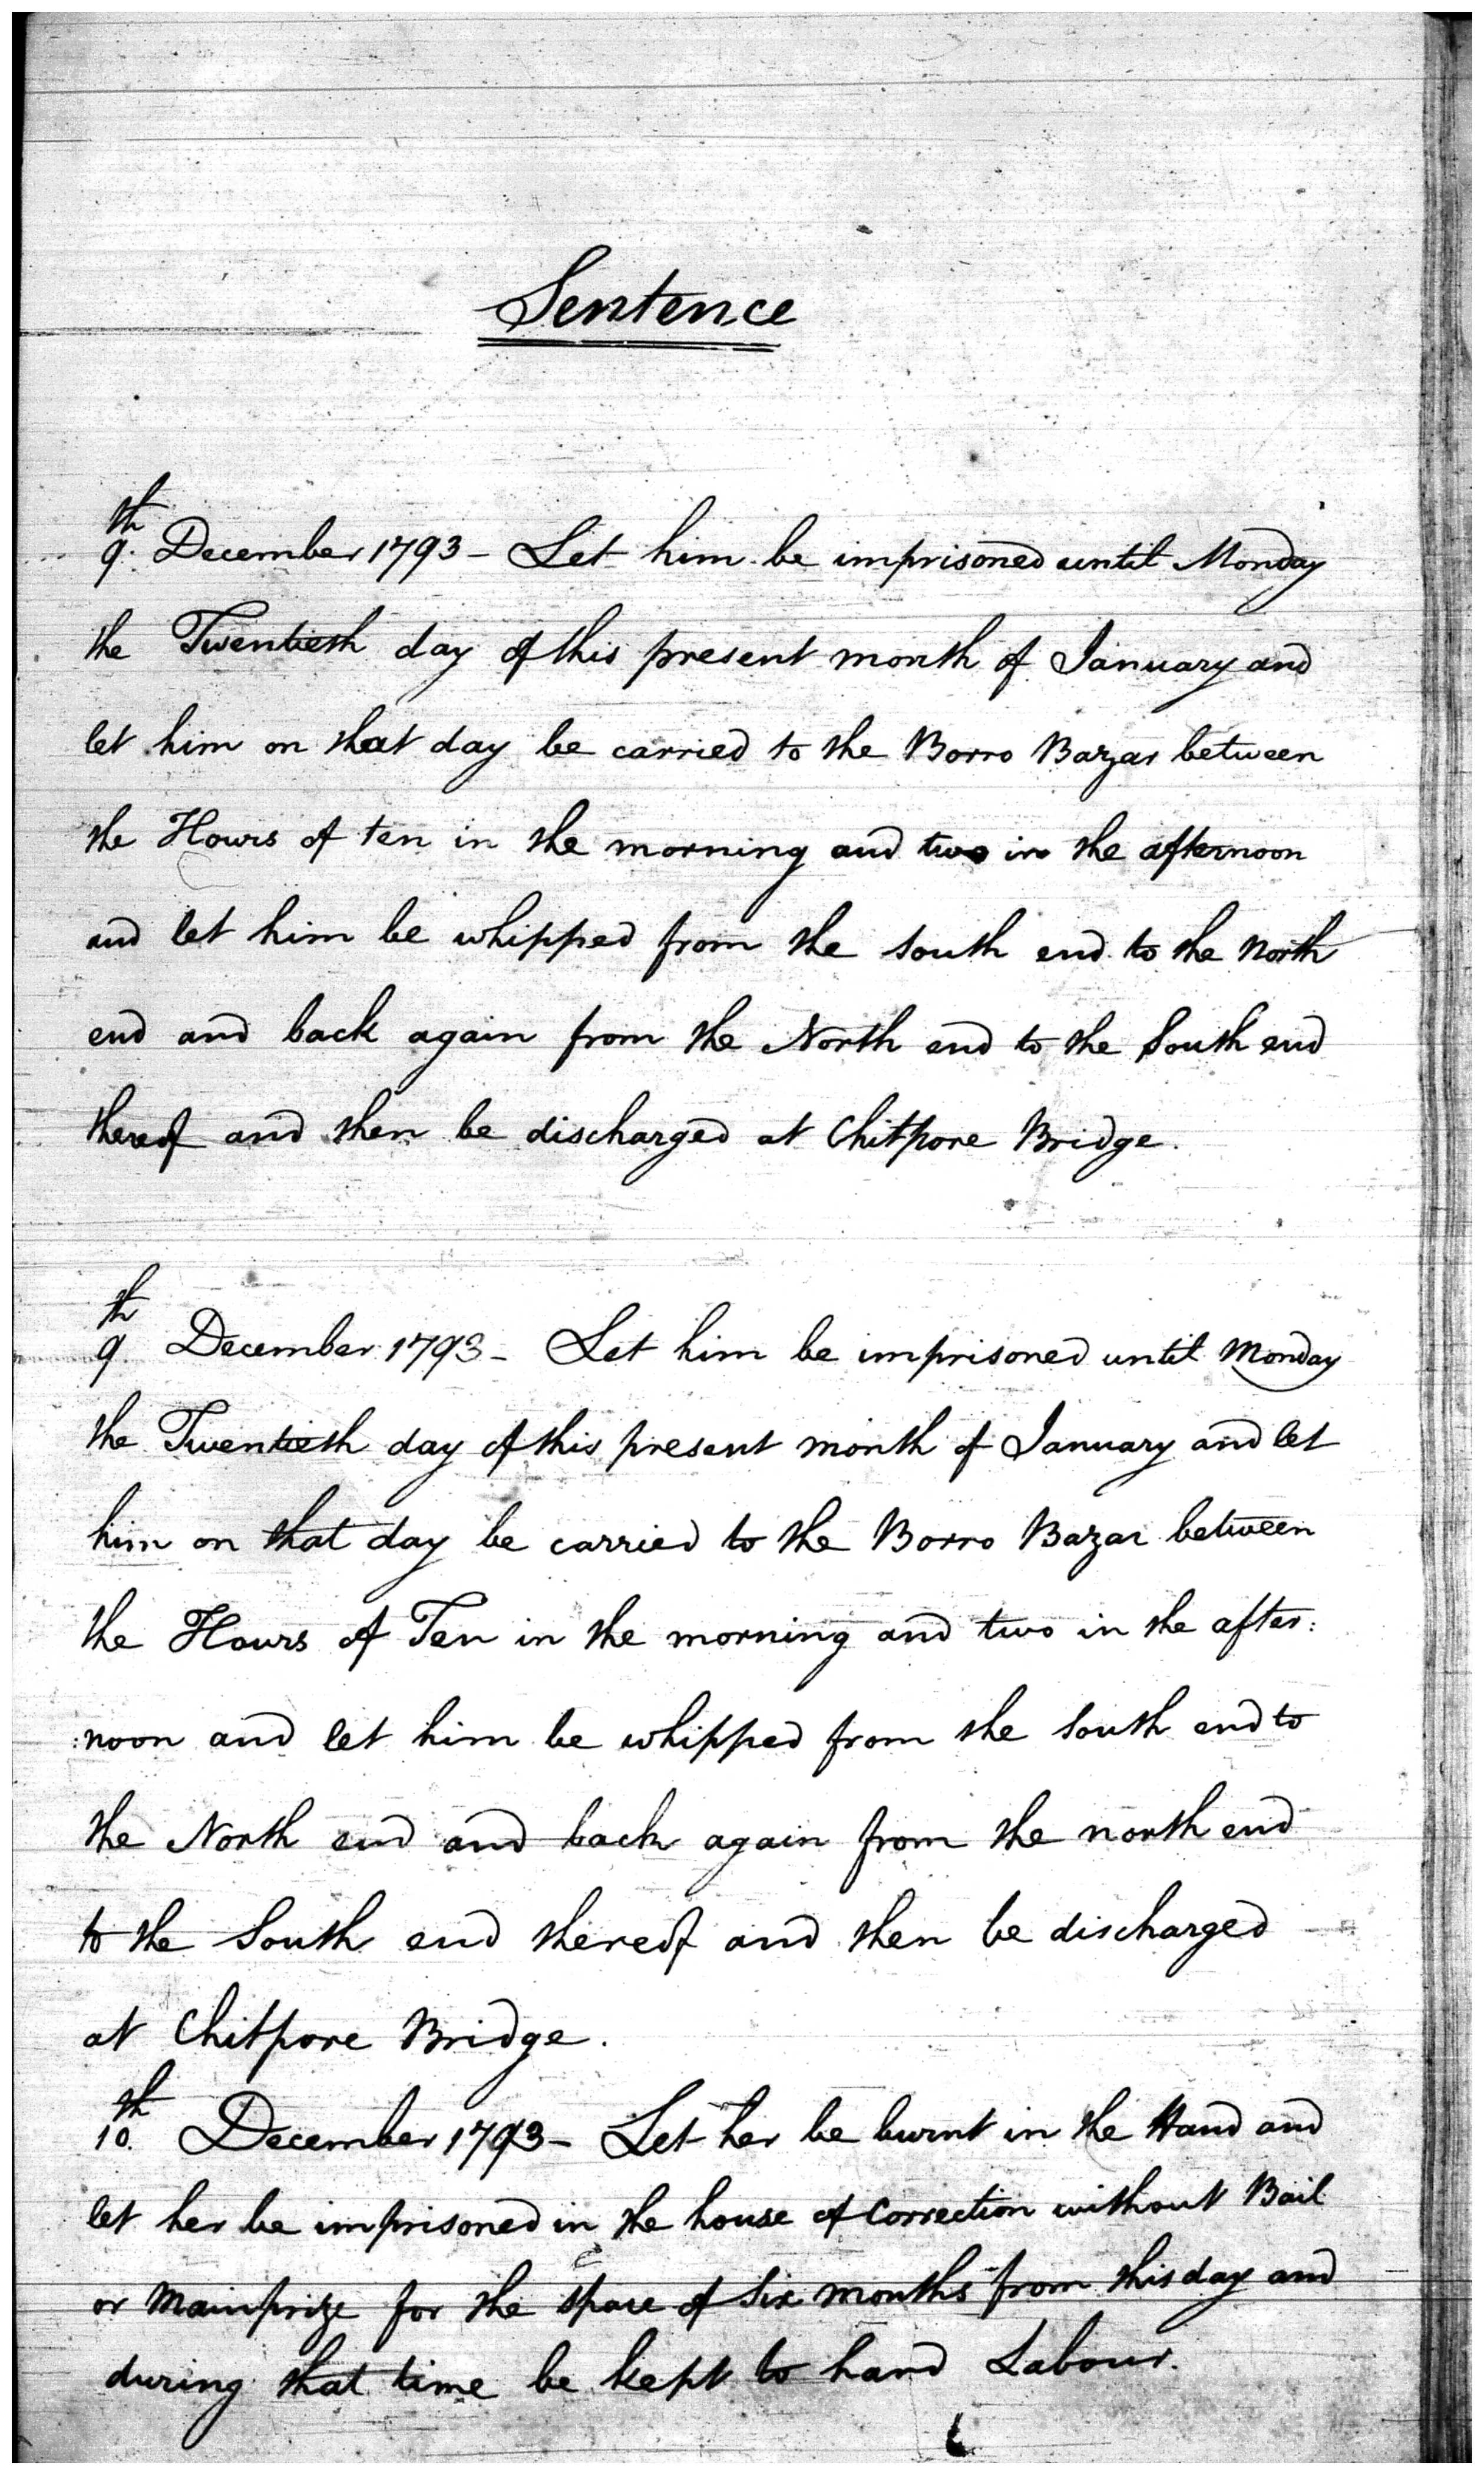 Sentence
9th. December 1793 - Let him be imprisoned until Monday
the Twentieth day of this present month of January and
let him on that day be carried to the Borro Bazar between
the Hours of ten in the morning and two in the afternoon
and let him be whipped from the South end to the North
end and back again from the North end to the South end
thereof and then be discharged at Chitpore Bridge.
9th. December 1793 - Let him be imprisoned until Monday
the Twentieth day of this present month of January and let
him on that day be carried to the Borro Bazar between
the Hours of Ten in the morning and two in the after:
:noon and let him be whipped from the South end to
the North end and back again from the north end
to the South end thereof and then be discharged
at Chitpore Bridge.
10th. December 1793 - Let her be burnt in the Hand and
let her be imprisoned in the house of Correction without Bail
or Mainprize for the space of Six months from this day and
during that time be kept to hard Labour.